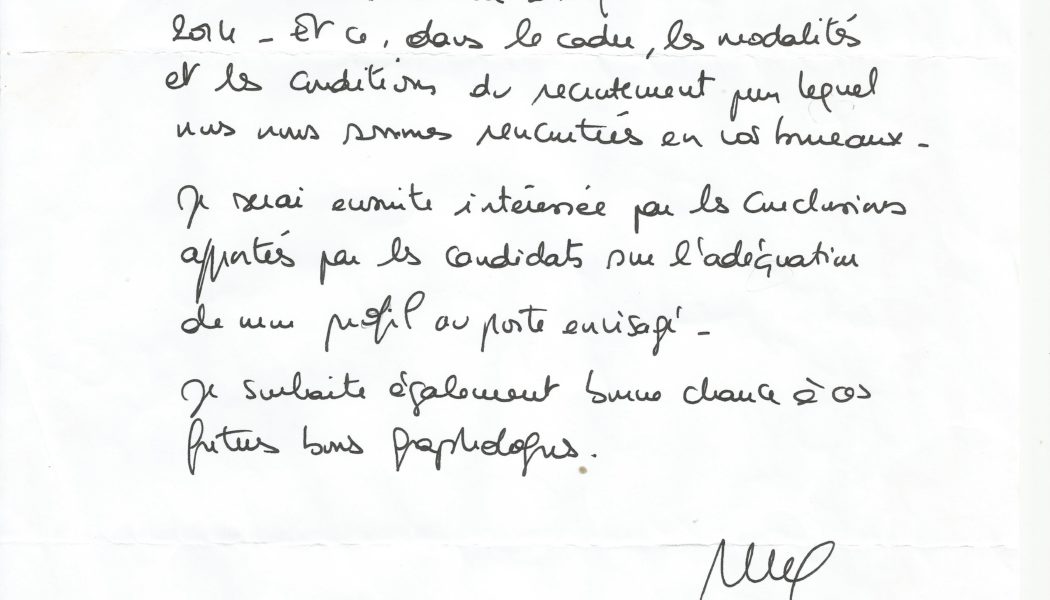 2014 - Et ce, dans le cadre, les modalités
et les conditions du recrutement pour lequel
nous nous sommes rencontrés en vos bureaux -
Je serai ensuite intéressée par les conclusions
apportés par les candidats sur l'adéquation
de mon profil au poste envisagé -
Je souhaite également bonne chance à ces
futurs bons graphologues.